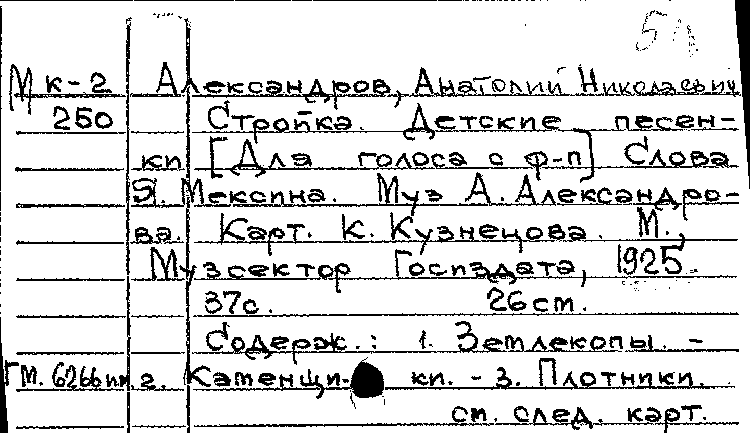 5л
Мк-2 Александров, Анатолий Николаевич
250 Стройка. Детские песен-
ки [Для голоса с ф-п] Слова
Я. Мексина. Муз А. Александро-
ва. Карт. К. Кузнецова. М.,
Музсектор Госиздата, 1925.
37с. 26 см.
Содерж.: 1. Землекопы. -
ГМ. 6266 2. Каменщи- ки. - 3. Плотники.
см. след. карт.